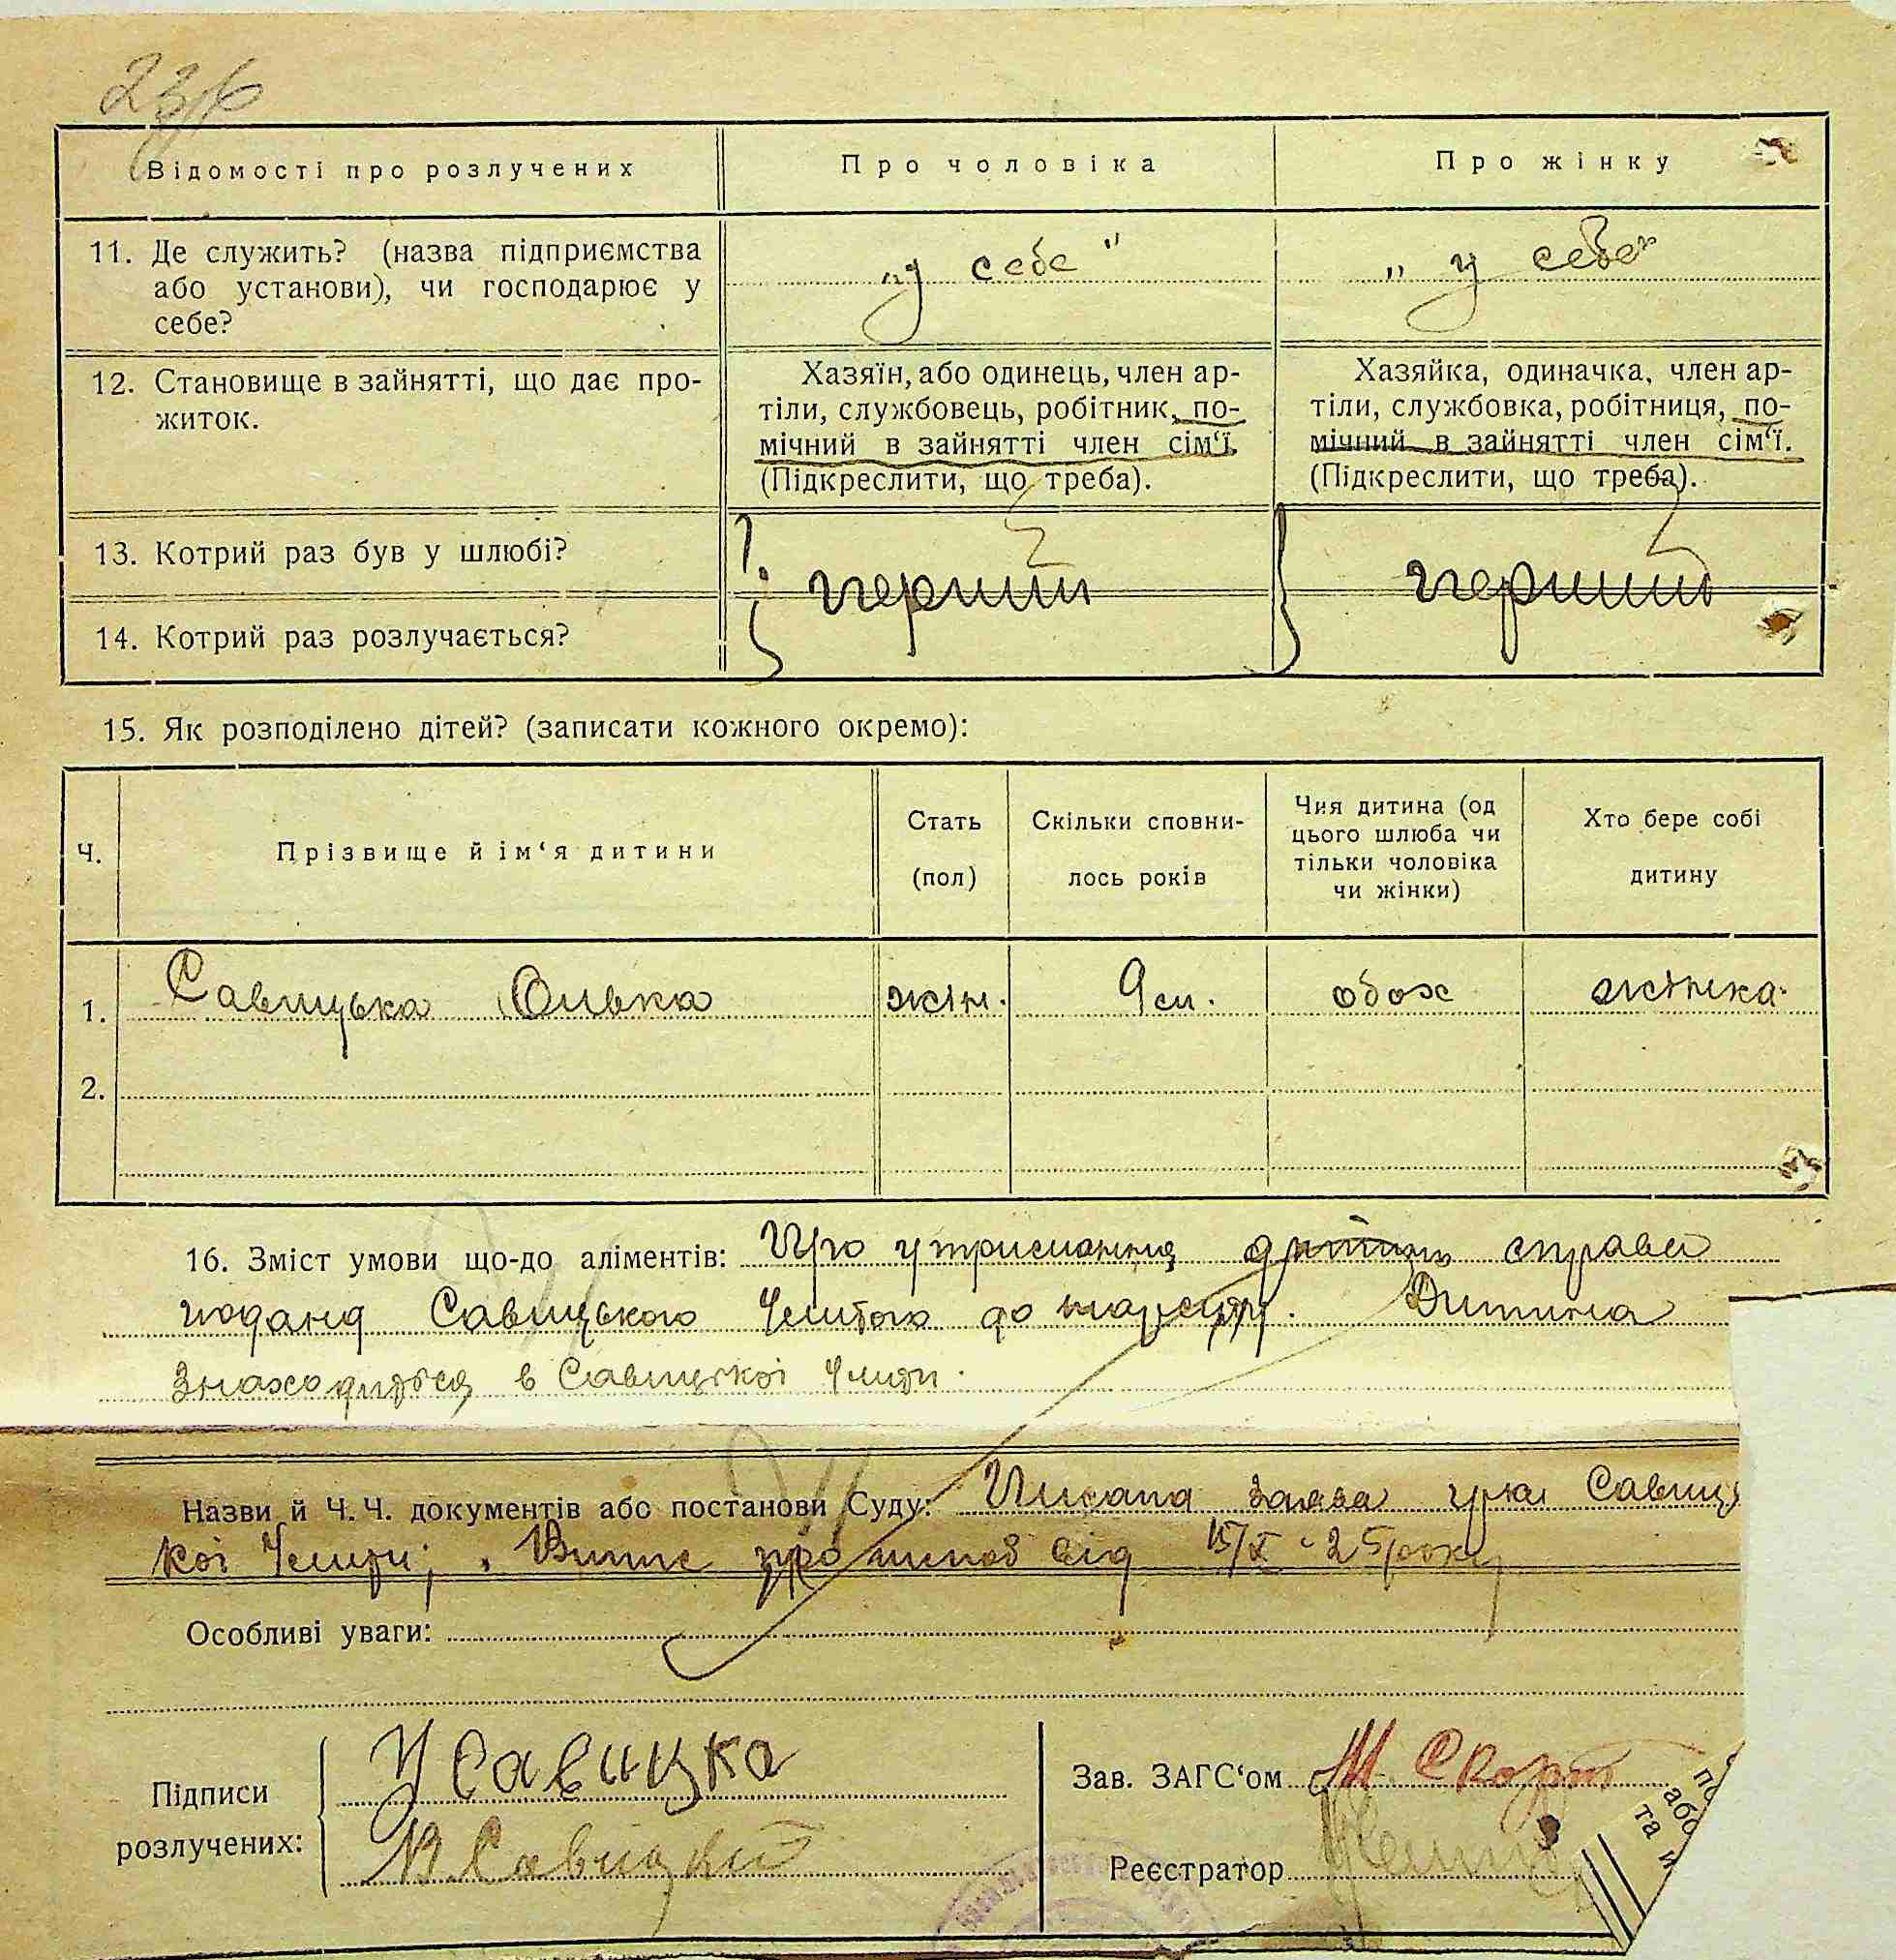 236
Відомості про розлучених
Про чоловіка
Про жінку
11. Де служить? (назва підприємства
або установи), чи господарює у
себе?
„у себе"
„у себе"
12. Становище в зайнятті, що дає про-
житок.
Хазяїн, або одинець, член ар-
тіли, службовець, робітник, по-
мічний в зайнятті член сім‘ї.
(Підкреслити, що треба).
Хазяйка, одиначка, член ар-
тіли, службовка, робітниця, по-
мічний в зайнятті член сім‘ї.
(Підкреслити, що треба).
13. Котрий раз був у шлюбі?
14. Котрий раз розлучається?
перший
перший
15. Як розподілено дітей? (записати кожного окремо):
Ч.
Прізвище й ім‘я дитини
Стать
(пол)
Скільки сповни-
лось років
Чия дитина (од
цього шлюба чи
тільки чоловіка
чи жінки)
Хто бере собі
дитину
1. Савицька жін. 9 м. обох жінка
2.
16. Зміст умови що-до аліментів: Про утримання дитини справа
подана Савицького до нарсуду. Дитина
знаходиться в Савицької
Назви й Ч. Ч. документів або постанови Суду: заява гр-ки Савиць
кої ; Витяг про шлюб від 15/X-25 року
Особливі уваги:
Підписи
розлучених:
У Савицка
В. Савицкий
Зав. ЗАГС‘ом М
Реєстратор
по
або
та и